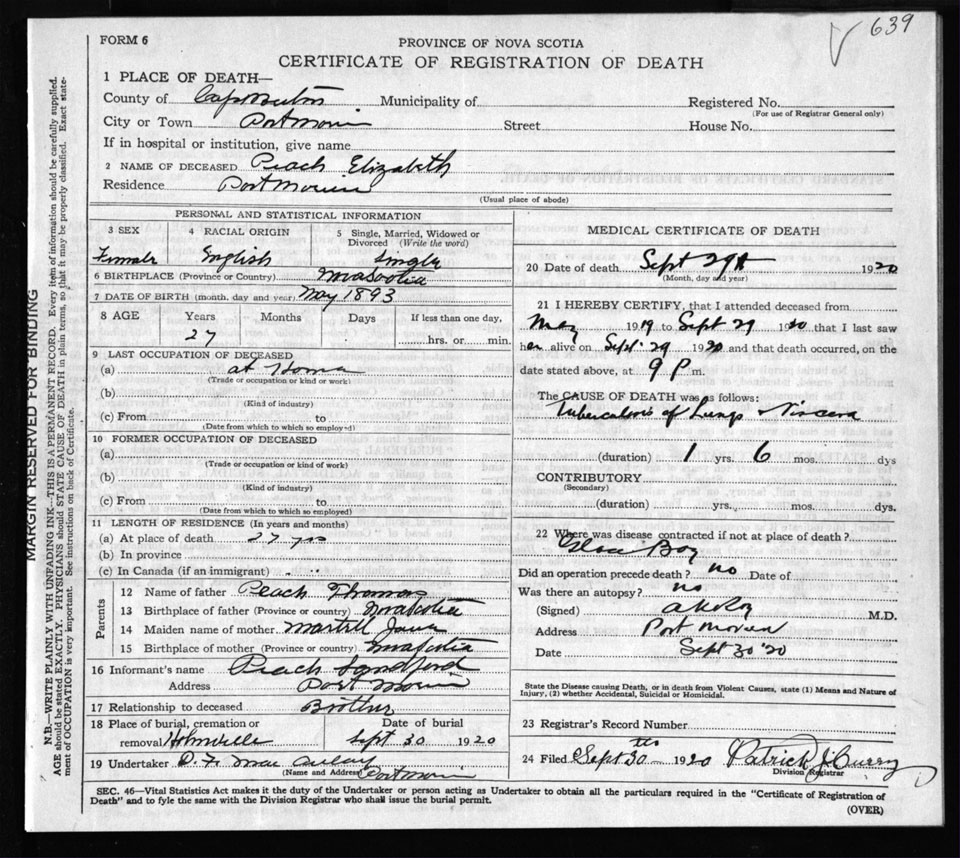 639
FORM 6
PROVINCE OF NOVA SCOTIA
CERTIFICATE OF REGISTRATION OF DEATH
1 PLACE OF DEATH—
County of Cape Breton Municipality of Registered No.
(For use of Registrar General only)
City or Town Port Morien Street House No.
If in hospital or institution, give name
2 NAME OF DECEASED Peach Elizabeth
Residence Port Morien
(Usual place of abode)
PERSONAL AND STATISTICAL INFORMATION
3 SEX 4 RACIAL ORIGIN 5 Single, Married, Widowed or Divorced (Write the word)
Female English Single
6 BIRTHPLACE (Province or Country) Nova Scotia
7 DATE OF BIRTH (month, day and year) May 1893
8 AGE Years Months Days If less than one day,
27 hrs. or min.
9 LAST OCCUPATION OF DECEASED
(a) at Home
(Trade or occupation or kind of work)
(b)
(Kind of industry)
(c) From to
(Date from which to which so employed)
10 FORMER OCCUPATION OF DECEASED
(a)
(Trade or occupation or kind of work)
(b)
(Kind of industry)
(c) From to
(Date from which to which so employed)
11 LENGTH OF RESIDENCE (In years and months)
(a) At place of death 27 yrs
(b) In province
(c) In Canada (if an immigrant)
Parents
12 Name of father Peach Thomas
13 Birthplace of father (Province or country) Nova Scotia
14 Maiden name of mother Martell Jane
15 Birthplace of mother (Province or country) Nova Scotia
16 Informant's name Peach Sandford
Address Port Morien
17 Relationship to deceased Brother
18 Place of burial, cremation or removal Homeville Date of burial Sept 30 1920
19 Undertaker Mac Aulay
(Name and Address) Port Morien
MEDICAL CERTIFICATE OF DEATH
20 Date of death Sept 29th 1920
(Month, day and year)
21 I HEREBY CERTIFY, that I attended deceased from
May 1919 to Sept 29 1920 that I last saw
her alive on Sept. 29 1920 and that death occurred, on the
date stated above, at 9 P m.
The CAUSE OF DEATH was as follows:
Tuberculosis of Lungs & Viscera
(duration) 1 yrs. 6 mos. dys
CONTRIBUTORY
(Secondary)
(duration) yrs. mos. dys.
22 Where was disease contracted if not at place of death?
Glace Bay
Did an operation precede death? no Date of
Was there an autopsy? no
(Signed) M.D.
Address Port Morien
Date Sept 30 '20
State the Disease causing Death, or in death from Violent Causes, state (1) Means and Nature of
Injury, (2) whether Accidental, Suicidal or Homicidal.
23 Registrar's Record Number
24 Filed Sept 30th 1920 Patrick J Curry
Division Registrar
SEC. 46—Vital Statistics Act makes it the duty of the Undertaker or person acting as Undertaker to obtain all the particulars required in the "Certificate of Registration of
Death" and to fyle the same with the Division Registrar who shall issue the burial permit.
(OVER)
MARGIN RESERVED FOR BINDING
N.B.—WRITE PLAINLY WITH UNFADING INK—THIS IS A PERMANENT RECORD. Every item of information should be carefully supplied.
AGE should be stated EXACTLY. PHYSICIANS should STATE CAUSE OF DEATH in plain terms, so that it may be properly classified. Exact state-
ment of OCCUPATION is very important. See instructions on back of Certificate.